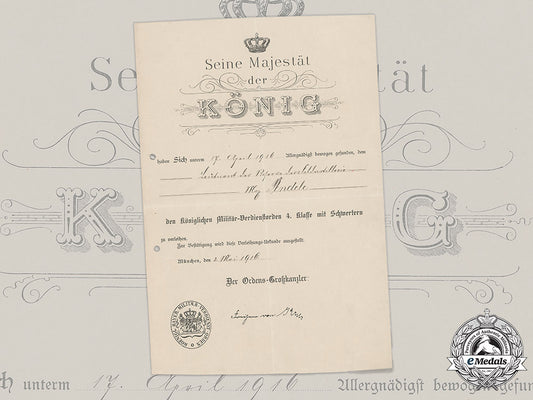 Seine Majestät
der
KÖNIG
haben Sich unterm 17. April 1916 Allergnädigst bewogen gefunden, dem
Leutnant der Reserve
Max
den Königlichen Militär-Verdienstorden 4. Klasse mit Schwertern
zu verleihen.
Zur Bestätigung wird diese Verleihungs-Urkunde ausgestellt.
München, den 2. Mai 1916.
Der Ordens-Großkanzler:
Se
tät
K
G
ch unterm 17. April 1916 Allergnädigst bewogen gefun
eMedals